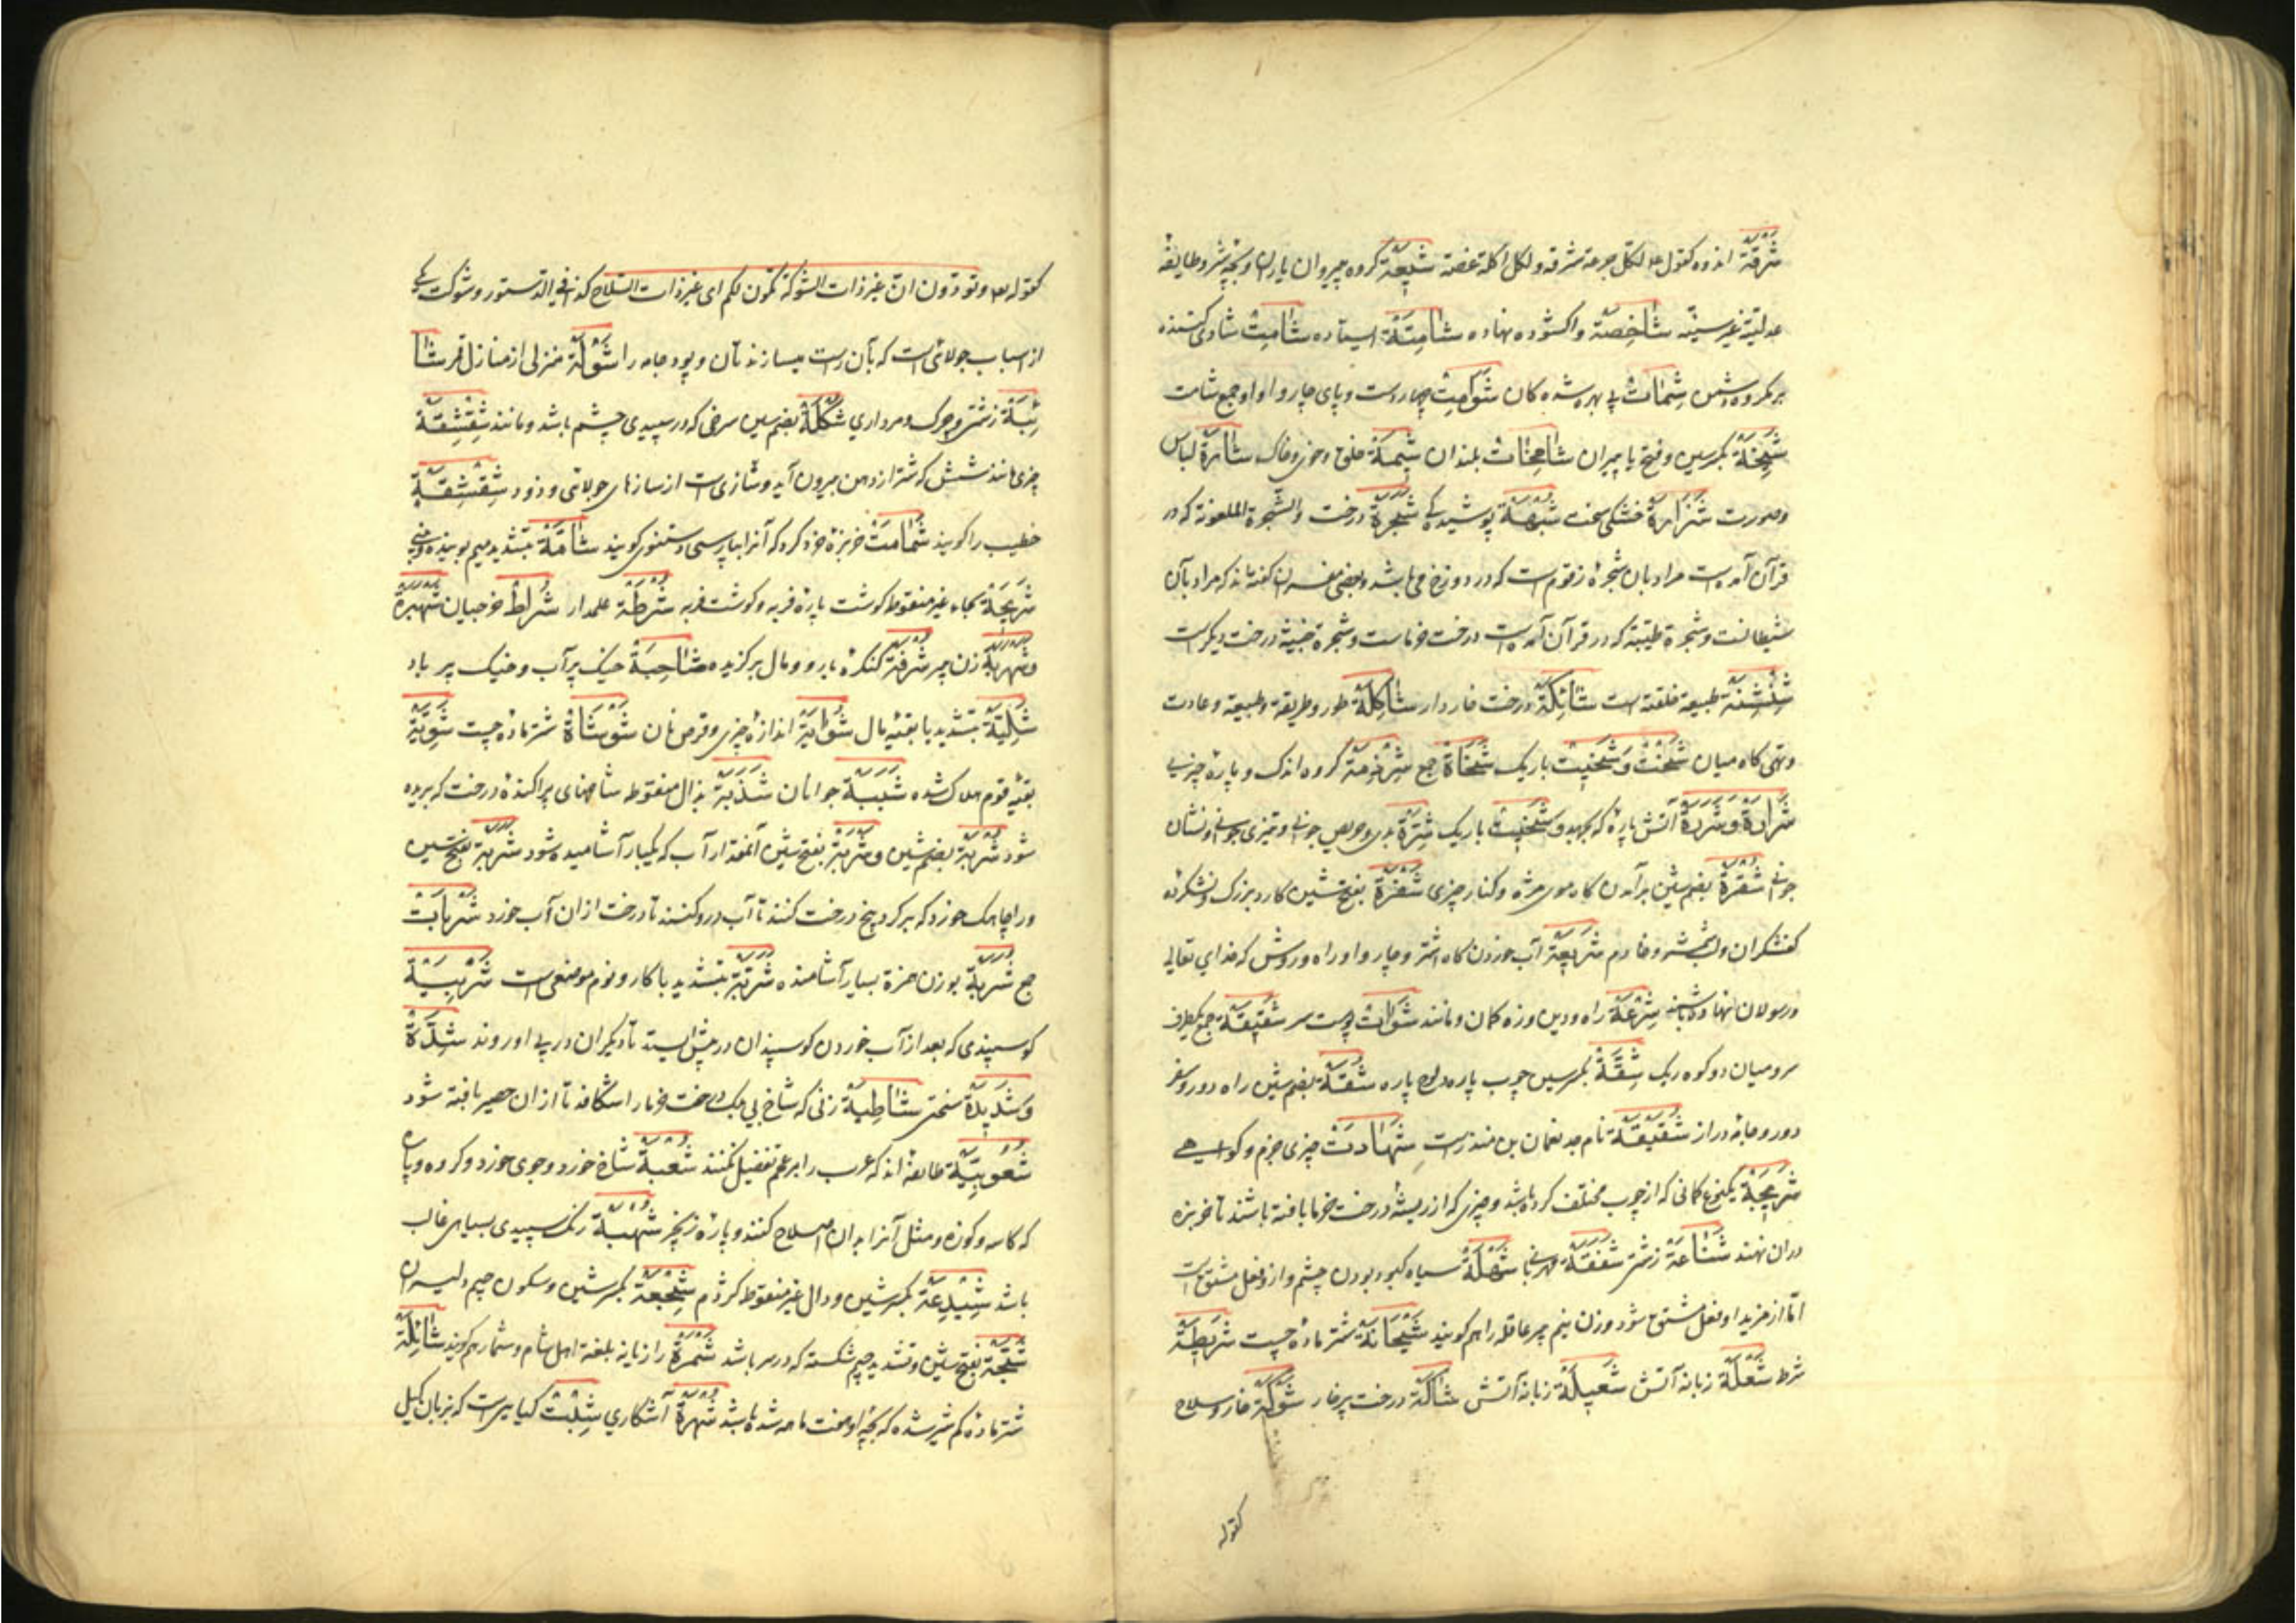 شَرْقَة اندوه کقوله لکل جرعة شرقة ولکل اکلة غصة شِیعَة گروه پیروان یاران و بچه شیر و طایفه
شَاخِصَة واکشوده نهاده شَامِتَة ایستاده شَامِت شادی کننده
بر مکروه دشمن شِمَات بی بهره شده کان شَوَامِت چهار دست و پای چاروا و او جمع شامت
شِیَخَة بکسر شین و فتح یا پیران شَامِخَات بلندان شِیمَة خلق و خوی و خاک شَارَة لباس
وصورت شَزَازَة خشکی سخت شُبْهَة پوشیده کی شَجَرَة درخت والشجرة الملعونة که در
قرآن آمده است مراد بان شجرهٔ زقوم است که در دوزخ می باشد و بعضی مفسران گفته اند که مراد بآن
شیطانست و شجرة طیبة که در قرآن آمده است درخت خرماست و شجرة خبیثة درخت دیگر است
شِنْشِنَة طبیعة خلقتست شَائِکَة درخت خار دار شَاکِلَة طور و طریقه و طبیعة و عادت
وتهی کاه میان شَخْت وَ شَخِیت باریک جمع شِرْذِمَة گروه اندک و پارهٔ چیزی
شَرَارَة وَ شَرَرَة آتش پارهٔ که بجهد و باریک شِرَّة بدی و حرص جوانی و تیزی جوانی و نشان
جوانی شُفْرَة بضم شین برآمدن گاه موی مژه و کنار چیزی شَفْرَة بفتح شین کارد بزرگ و نشکرده
کفشکران و خادم شَرِیعَة آب خوردن گاه اشتر و چاروا و راه و روش که خدای تعالی
ورسولان نهاده باشند شِرْعَة راه و دین و زه کمان و مانند شَوَات پوست سر شَقِیقَة جمع یکطرف
سر و میان دو کوه ریک شِقَّة بکسر شین چوب پاره و لوح پاره شُقَّة بضم شین راه دور و سفر
دور و جامهٔ دراز شَقِیقَة نام جد نعمان بن منذرست شَهَادَت چیزی جزم و گواهی
شَرِیجَة یک نوع کمانی که از چوب مختلف کرده باشد و چیزی که از ریشهٔ درخت خرما بافته باشند تا خربزه
دران نهند شَنَاعَة زشتی شَفَقَة مهربانی شُهْلَة سیاه کبود بودن چشم و ازو فعل مشتق است
اما از مزید او فعل مشتق شود و زن نیم پیر عاقله را هم گویند شَیْحَانَة شتر مادهٔ چست شَرِیطَة
شرط شُعْلَة زبانهٔ آتش شَعِیلَة زبانهٔ آتش شَاکَة درخت پرخار شَوْکَة خار و سلاح
کقوله
کقوله وتودون ان غیر ذات الشوکة تکون لکم ای غیر ذات السلاح کذا فی الدستور و شوکت یکی
از اسباب جولائی است که بآن راست میسازند تان و پود جامه را شَوْلَة منزلی از منازل قمر شَا
ئِبَة زشتی و چرک و مرداری شُکْلَة بضم شین سرخی که در سپیدی چشم باشد و مانند شِقْشِقَة
چیزی مانند شش که شتر از دهن بیرون آید و سازی است از سازهای جولائی و ذو شِقْشِقَة
خطیب را گویند شَمَّامَت خربزهٔ خرد گرد که آنرا بپارسی دستنبوی گویند شَامَّة بتشدید میم بوینده و بینی
شَرِیحَة بحاء غیر منقوط گوشت پارهٔ فربه و گوشت فربه شُرْطَة علمدار شُرَط خوجیان شَهْبَرَة
و شَهْرَبَة زن پیر شُرْفَة کنکرهٔ بارو و مال برگزیده شَاحِبَة خیک پر آب و خیک پر باد
شَلِیَّة بتشدید یا بقیهٔ مال شَوَایَة اندازهٔ چیزی و قرص نان شَوْشَاة شتر مادهٔ چست شَوِیَّة
بقیهٔ قوم هلاک شده شَبَبَة جوانان شَذَبَة بذال منقوطه شاخهای پراکندهٔ درخت که بریده
شود شُرْبَة بضم شین و شَرْبَة بفتح شین آنمقدار آب که یکبار آشامیده شود شَرَبَة بفتح شین
و را چاهک خورد که بر گرد بیخ درخت کنند تا آب درو کنند تا درخت از ان آب خورد شَرَبَات
جمع شُرَبَة بوزن همزة بسیار آشامنده شَرَبَّة بتشدید با کار و نوم موضعی است شَرِیبَة
کوسپندی که بعد از آب خوردن کوسپندان در پیش ایستد تا دیگران در پی او روند شِدَّة
وَ شَدِیدَة سختی شَاطِبَة زنی که شاخ بی برگ درخت خرما را شکافد تا از ان حصیر بافته شود
شُعُوبِیَّة طائفهٔ اند که عرب را بر عجم تفضیل نکنند شُعْبَة شاخ خورد و جوی خورد و گروه و پارهٔ
که کاسه و کوزه و مثل آنرا بدان اصلاح کنند و پارهٔ زنجیر شُهْبَة رنگ سپیدی بسیاهی غالب
باشد شِبْدِعَة بکسر شین و دال غیر منقوط کژدم شِجْعَة بکسر شین و سکون جیم دلیران
شَجَّة بفتح شین و تشدید جیم شکسته که در سر باشد شَمْرَة رازیانه بلغة اهل شام و شمار هم گویند شَائِلَة
شتر ماده کم شیر شده که بچهٔ او هفت ماهه شده باشد شُهْرَة آشکاری شِبِت گیاهیست که بزبان گیل